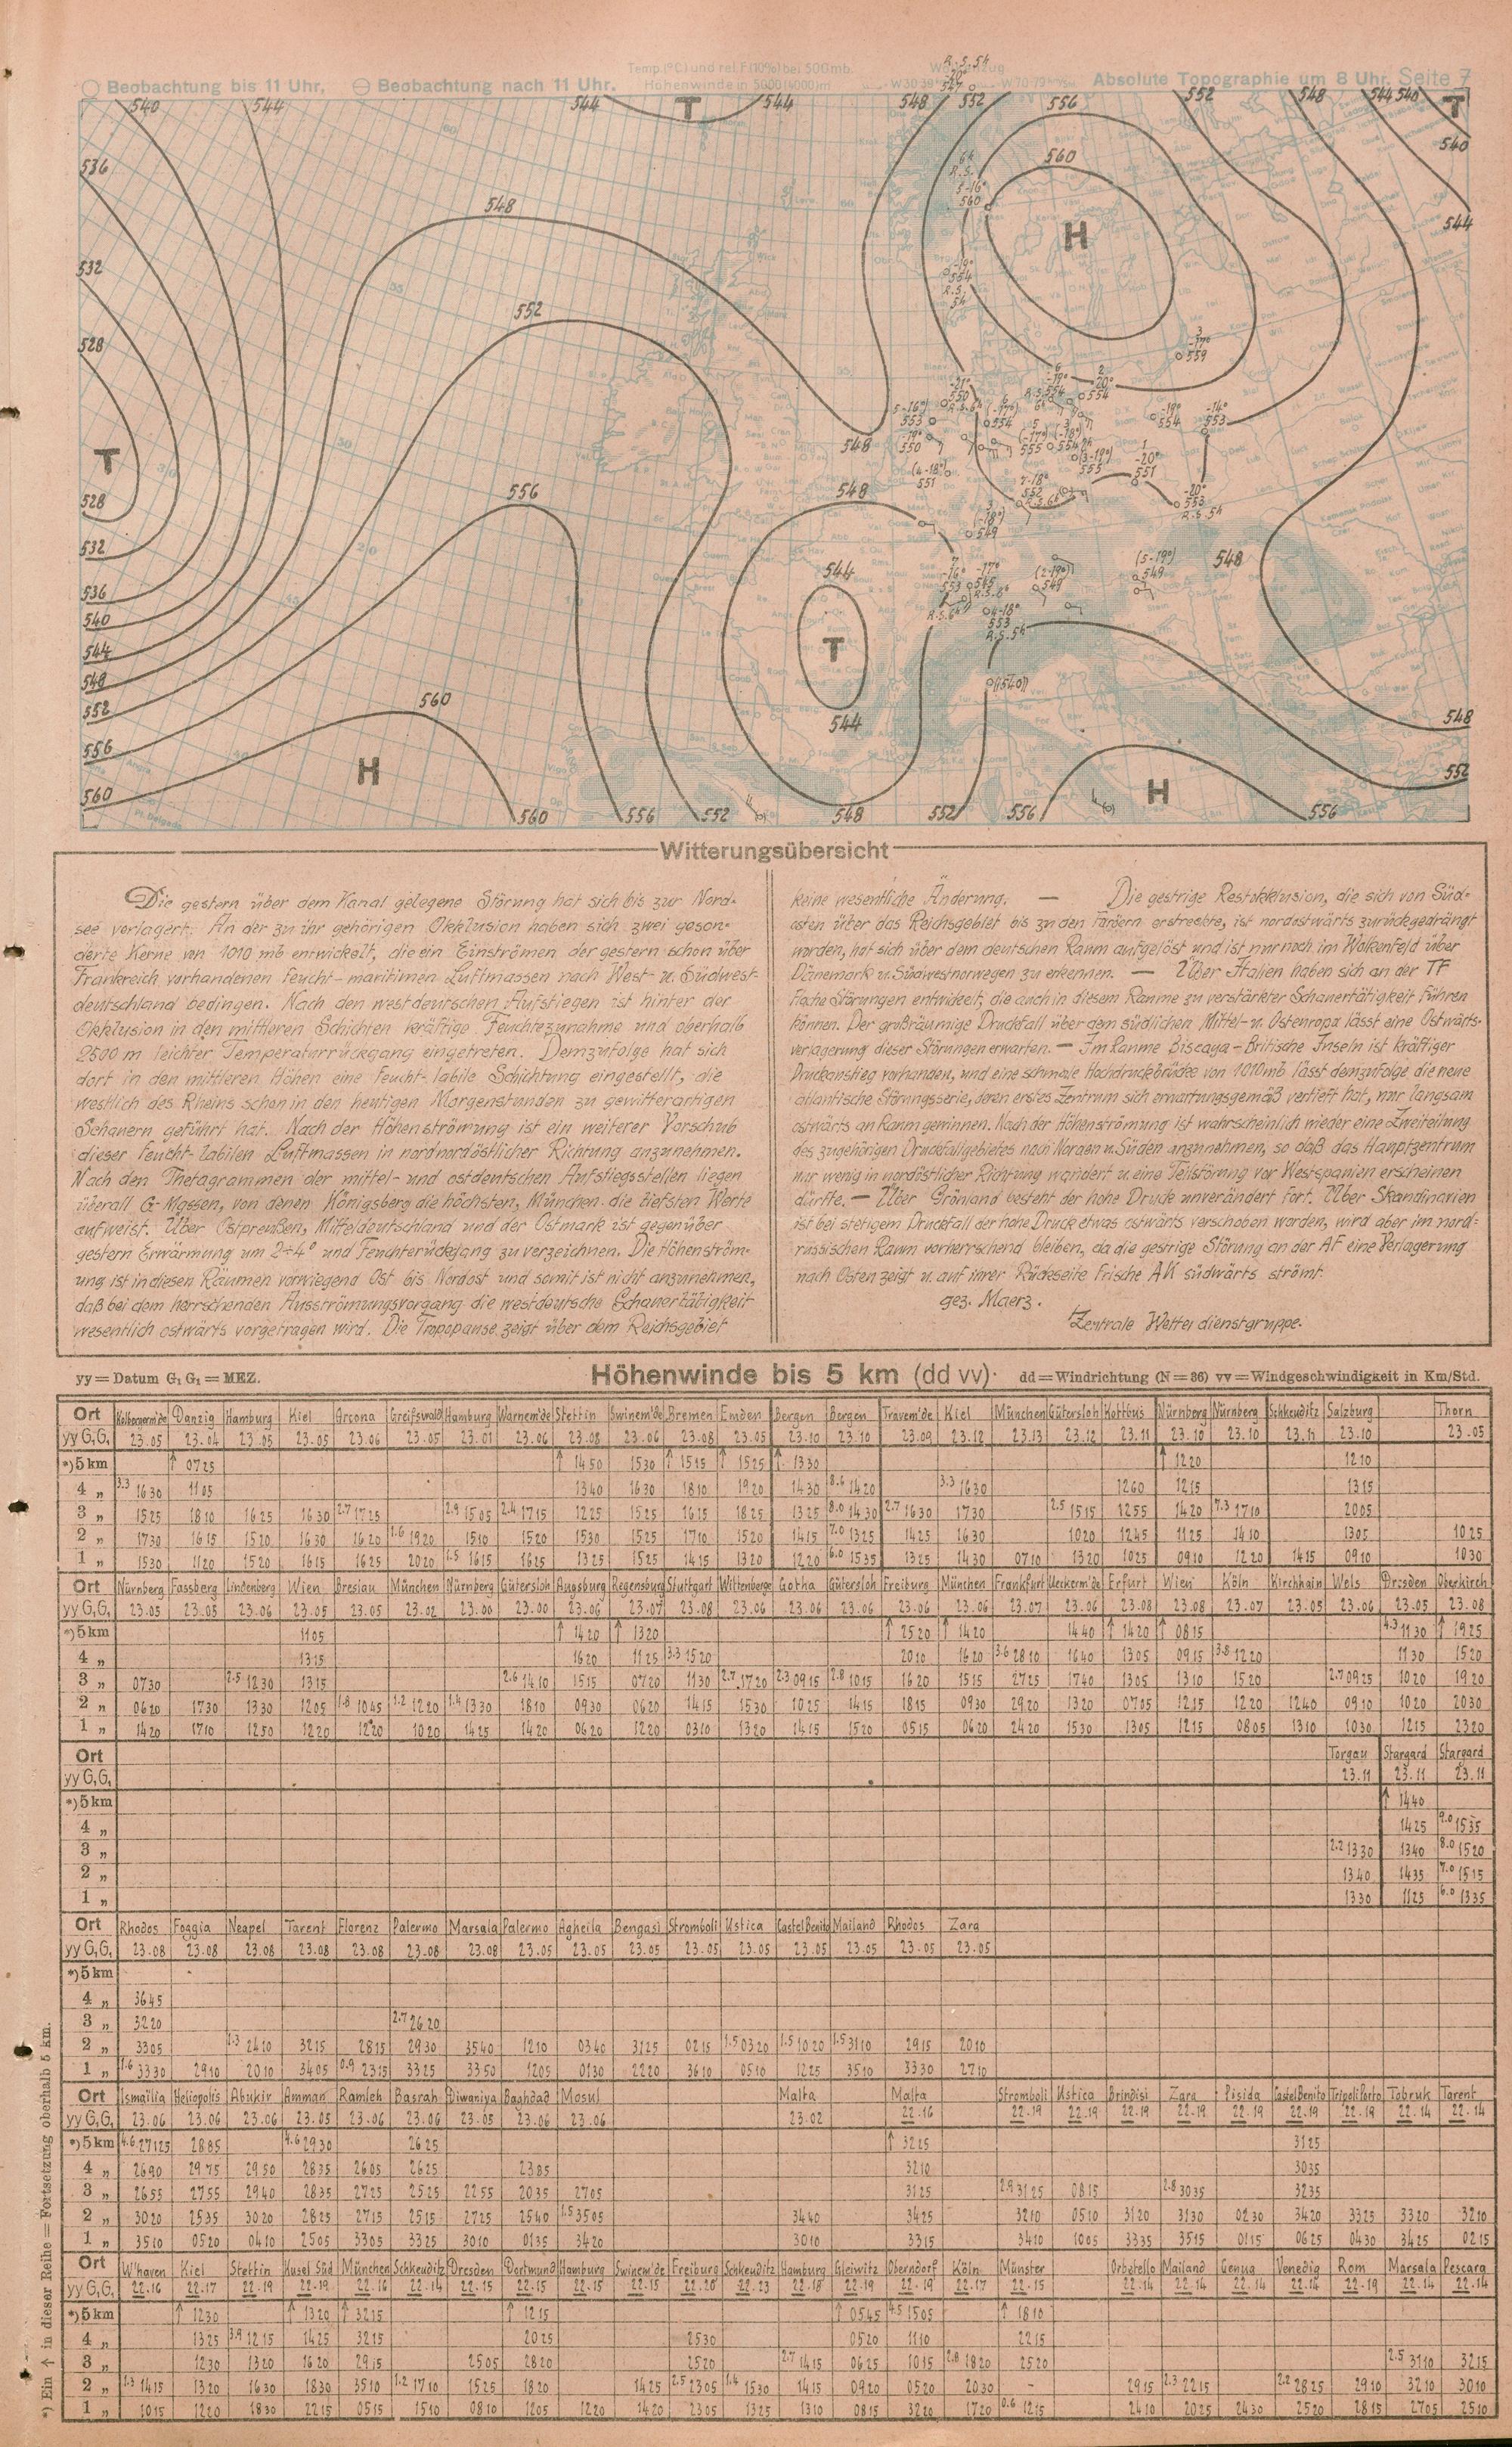 Beobachtung bis 11 Uhr, Beobachtung nach 11 Uhr.
Temp.(°C) und rel.F.(10%) bei 500mb.
Höhenwinde in 5000 (4000)m
Absolute Topographie um 8 Uhr. Seite 7
540 544 544 T 544 548 552 556 552 548 544 540 T
540
536
560
548
544
532
H
552
528
T
548
528
556
548
532
548
544
536
540
544
T
548
552
560
544
548
556
H
H
552
560
560 556 552 548 552 556 556
Witterungsübersicht
Die gestern über dem Kanal gelegene Störung hat sich bis zur Nord-
see verlagert. An der zu ihr gehörigen Okklusion haben sich zwei geson-
derte Kerne von 1010 mb entwickelt, die ein Einströmen der gestern schon über
Frankreich vorhandenen feucht-maritimen Luftmassen nach West- u. Südwest-
deutschland bedingen. Nach den westdeutschen Aufstiegen ist hinter der
Okklusion in den mittleren Schichten kräftige Feuchtezunahme und oberhalb
2500 m leichter Temperaturrückgang eingetreten. Demzufolge hat sich
dort in den mittleren Höhen eine feucht-labile Schichtung eingestellt, die
westlich des Rheins schon in den heutigen Morgenstunden zu gewitterartigen
Schauern geführt hat. Nach der Höhenströmung ist ein weiterer Vorschub
dieser feucht-labilen Luftmassen in nordnordöstlicher Richtung anzunehmen.
Nach den Thetagrammen der mittel- und ostdeutschen Aufstiegsstellen liegen
überall G-Massen, von denen Königsberg die höchsten, München die tiefsten Werte
aufweist. Über Ostpreußen, Mitteldeutschland und der Ostmark ist gegenüber
gestern Erwärmung um 2÷4° und Feuchterückgang zu verzeichnen. Die Höhenström-
ung ist in diesen Räumen vorwiegend Ost bis Nordost und somit ist nicht anzunehmen,
daß bei dem herrschenden Ausströmungsvorgang die westdeutsche Schauertätigkeit
wesentlich ostwärts vorgetragen wird. Die Tropopause zeigt über dem Reichsgebiet
keine wesentliche Änderung. — Die gestrige Restokklusion, die sich von Süd-
osten über das Reichsgebiet bis zu den Färöern erstreckte, ist nordostwärts zurückgedrängt
worden, hat sich über dem deutschen Raum aufgelöst und ist nur noch im Wolkenfeld über
Dänemark u. Südwestnorwegen zu erkennen. — Über Italien haben sich an der TF
flache Störungen entwickelt, die auch in diesem Raume zu verstärkter Schauertätigkeit führen
können. Der großräumige Druckfall über dem südlichen Mittel- u. Osteuropa lässt eine Ostwärts-
verlagerung dieser Störungen erwarten. — Im Raume Biscaya-Britische Inseln ist kräftiger
Druckanstieg vorhanden, und eine schmale Hochdruckbrücke von 1010mb lässt demzufolge die neue
atlantische Störungsserie, deren erstes Zentrum sich erwartungsgemäß vertieft hat, nur langsam
ostwärts an Raum gewinnen. Nach der Höhenströmung ist wahrscheinlich wieder eine Zweiteilung
des zugehörigen Druckfallgebietes nach Norden u. Süden anzunehmen, so daß das Hauptzentrum
nur wenig in nordöstlicher Richtung wandert u. eine Teilstörung vor Westspanien erscheinen
dürfte. — Über Grönland besteht der hohe Druck unverändert fort. Über Skandinavien
ist bei stetigem Druckfall der hohe Druck etwas ostwärts verschoben worden, wird aber im nord-
russischen Raum vorherrschend bleiben, da die gestrige Störung an der AF eine Verlagerung
nach Osten zeigt u. auf ihrer Rückseite frische AK südwärts strömt.
gez. Maerz.
Zentrale Wetterdienstgruppe.
yy = Datum G₁ G₁ = MEZ. Höhenwinde bis 5 km (dd vv). dd = Windrichtung (N = 36) vv = Windgeschwindigkeit in Km/Std.
Ort Danzig Hamburg Kiel Arcona Greifswald Hamburg Warnem'de Stettin Swinem'de Bremen Emden Bergen Bergen Travem'de Kiel München Gütersloh Kottbus Nürnberg Nürnberg Schkeuditz Salzburg Thorn
yy G₁G₁ 23.05 23.04 23.05 23.05 23.06 23.05 23.01 23.06 23.08 23.06 23.08 23.05 23.10 23.10 23.09 23.12 23.13 23.12 23.11 23.10 23.10 23.11 23.10 23.05
*) 5 km ↑ 0725 ↑ 1450 1530 ↑ 1515 ↑ 1525 ↑ 1330 ↑ 1220 1210
4 „ 3.3 1630 1105 1340 1630 1810 1920 1430 8.6 1420 3.3 1630 1260 1215 1315
3 „ 1525 1810 1625 1630 2.7 1725 2.9 1505 2.4 1715 1225 1525 1615 1825 1325 8.0 1430 2.7 1630 1730 2.5 1515 1255 1420 7.3 1710 2005
2 „ 1730 1615 1520 1630 1620 1.6 1920 1510 1520 1530 1525 1710 1520 1415 7.0 1325 1425 1630 1020 1245 1125 1410 1305 1025
1 „ 1530 1120 1520 1615 1625 2020 1.5 1615 1625 1325 1525 1415 1320 1220 6.0 1535 1325 1430 0710 1320 1025 0910 1220 1415 0910 1030
Ort Nürnberg Fassberg Lindenberg Wien Breslau München Nürnberg Gütersloh Augsburg Regensburg Stuttgart Wittenberge Gotha Gütersloh Freiburg München Frankfurt Ueckerm'de Erfurt Wien Köln Kirchhain Wels Dresden Oberkirch
yy G₁G₁ 23.05 23.05 23.06 23.05 23.05 23.02 23.00 23.00 23.06 23.07 23.08 23.06 23.06 23.06 23.06 23.06 23.07 23.06 23.08 23.08 23.07 23.05 23.06 23.05 23.08
*) 5 km 1105 ↑ 1420 ↑ 1320 ↑ 2520 ↑ 1420 1440 ↑ 1420 ↑ 0815 4.3 1130 ↑ 1925
4 „ 1315 1620 1125 3.3 1520 2010 1620 3.6 2810 1640 1305 0915 3.8 1220 1130 1520
3 „ 0730 2.5 1230 1315 2.6 1410 1515 0720 1130 2.7 1720 2.3 0915 2.8 1015 1620 1515 2725 1740 1305 1310 1520 2.7 0925 1020 1920
2 „ 0610 1730 1330 1205 1.8 1045 1.2 1220 1.4 1330 1810 0930 0620 1415 1530 1025 1415 1815 0930 2920 1320 0705 1215 1220 1240 0910 1020 2030
1 „ 1420 1710 1250 1220 1220 1020 1425 1420 0620 1220 0310 1320 1415 1520 0515 0620 2420 1530 1305 1215 0805 1310 1030 1215 2320
Ort Torgau Stargard Stargard
yy G₁G₁ 23.11 23.11 23.11
*) 5 km ↑ 1440
4 „ 1425 9.0 1535
3 „ 2.2 1330 1340 8.0 1520
2 „ 1340 1435 7.0 1515
1 „ 1330 1125 6.0 1335
Ort Rhodos Foggia Neapel Tarent Florenz Palermo Marsala Palermo Agheila Bengasi Stromboli Ustica Castel Benito Mailand Rhodos Zara
yy G₁G₁ 23.08 23.08 23.08 23.08 23.08 23.08 23.08 23.05 23.05 23.05 23.05 23.05 23.05 23.05 23.05 23.05
*) 5 km
4 „ 3645
3 „ 3220 2.7 2620
2 „ 3305 1.3 2410 3215 2815 2930 3540 1210 0340 3125 0215 1.5 0320 1.5 1020 1.5 3110 2915 2010
1 „ 1.6 3330 2910 2010 3405 0.9 2315 3325 3350 1205 0130 2220 3610 0510 1225 3510 3330 2710
Ort Ismaïlia Heliopolis Abukir Amman Ramleh Basrah Diwaniya Baghdad Mosul Malta Malta Stromboli Ustica Brindisi Zara Pisida Castel Benito Tripoli Porto Tobruk Tarent
yy G₁G₁ 23.06 23.06 23.06 23.05 23.06 23.06 23.05 23.06 23.06 23.02 22.16 22.19 22.19 22.19 22.19 22.19 22.19 22.19 22.14 22.14
*) 5 km 4.6 27125 2885 4.6 2930 2625 ↑ 3225 3125
4 „ 2690 2975 2950 2835 2605 2625 2385 3210 3035
3 „ 2655 2755 2940 2835 2725 2525 2255 2035 2705 3125 2.9 3125 0815 2.8 3035 3235
2 „ 3020 2535 3020 2825 2715 2515 2725 2540 1.5 3505 3440 3425 3210 0510 3120 3130 0230 3420 3325 3320 3210
1 „ 3510 0520 0410 2505 3305 3325 3010 0135 3420 3010 3315 3410 1005 3335 3515 0115 0625 0430 3425 0215
Ort W'haven Kiel Stettin Husel Süd München Schkeuditz Dresden Dortmund Hamburg Swinem'de Freiburg Schkeuditz Hamburg Gleiwitz Oberndorf Köln Münster Orbetello Mailand Genua Venedig Rom Marsala Pescara
yy G₁G₁ 22.16 22.17 22.19 22.19 22.16 22.14 22.15 22.15 22.15 22.15 22.20 22.23 22.18 22.19 22.19 22.17 22.15 22.14 22.14 22.14 22.14 22.19 22.14 22.14
*) 5 km ↑ 1230 ↑ 1320 ↑ 3215 ↑ 1215 ↑ 0545 4.5 1505 ↑ 1810
4 „ 1325 3.9 1215 1425 3215 2025 2530 0520 1110 2215
3 „ 1230 1320 1620 2915 2505 2820 2520 2.7 1415 0625 1015 2.8 1820 2520 2.5 3110 3215
2 „ 1.3 1415 1320 1630 1830 3510 1.2 1710 1525 1820 1425 2.5 2305 1.4 1530 1415 0920 0520 2030 - 2915 2.3 2215 2.2 2825 2910 3210 3010
1 „ 1015 1220 1830 2215 0515 1510 0810 1205 1220 1420 2305 1325 1310 0815 3220 1720 0.6 1215 2410 2025 2430 2520 2815 2705 2510
*) Ein ↑ in dieser Reihe = Fortsetzung oberhalb 5 km.